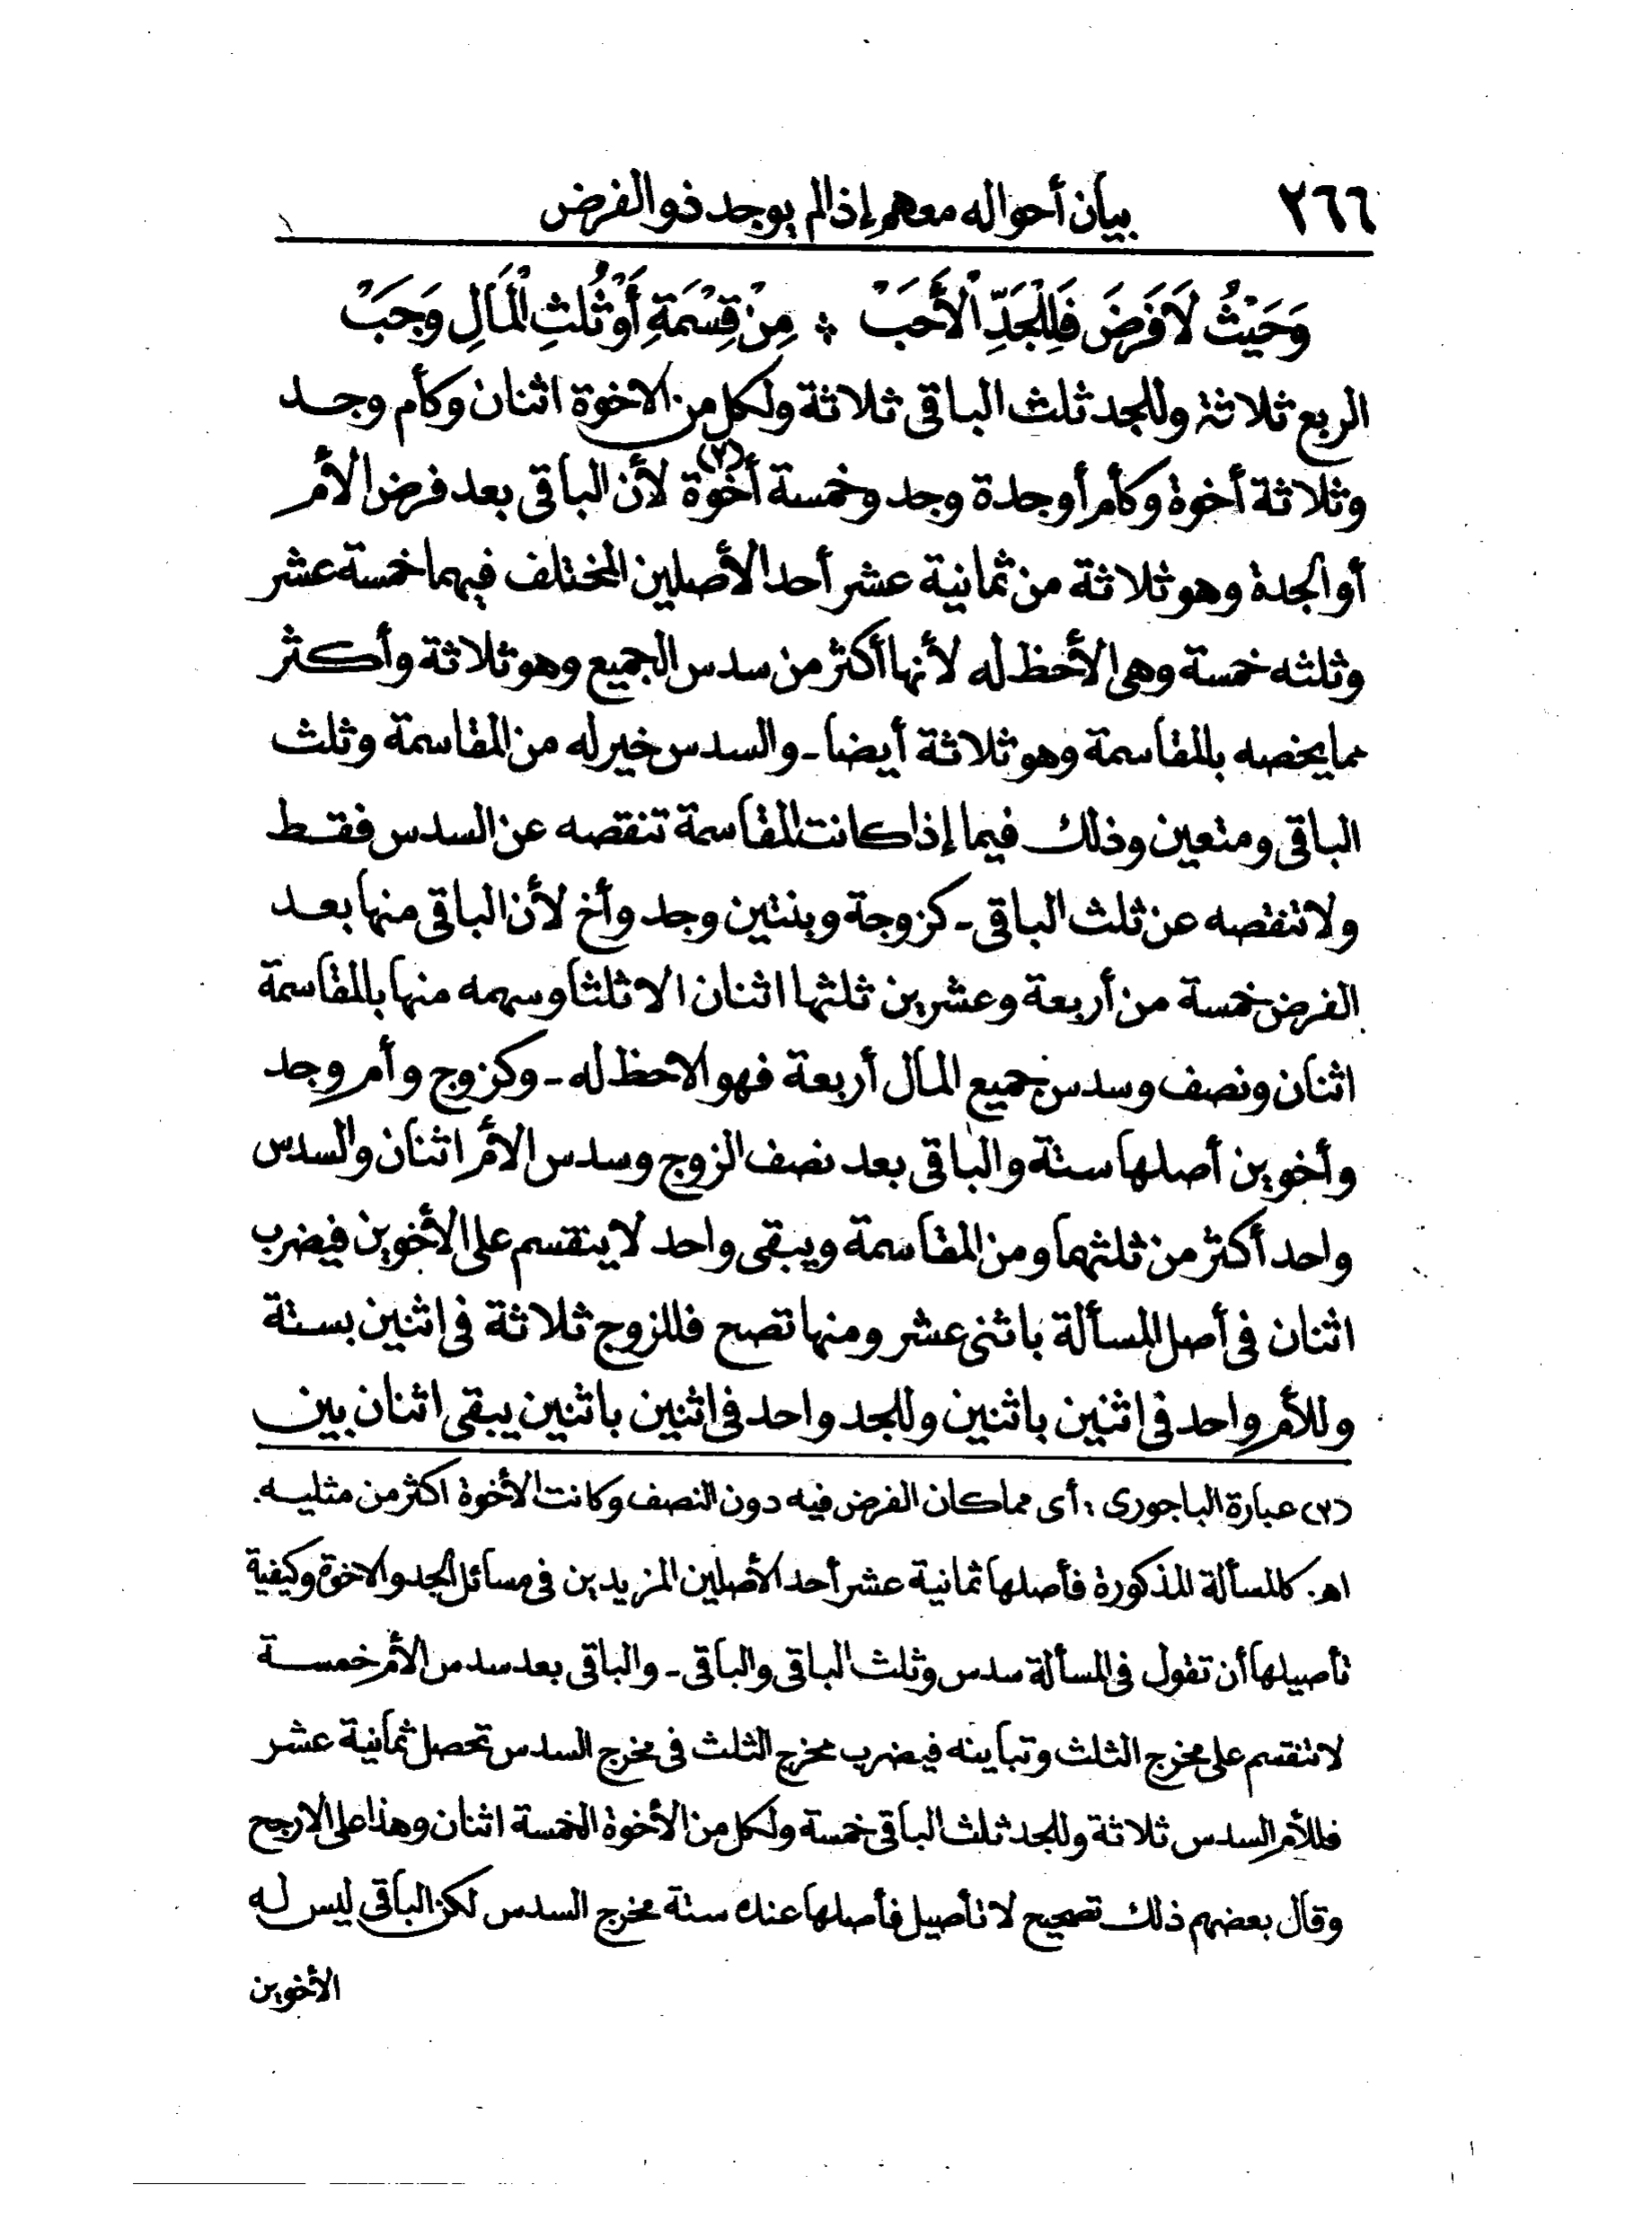 ٢٦٦ بيان أحواله معهم إذالم يوجد ذوالفرض
وَحَيْثُ لَا فَرَضَ فَلِلْجَدِّ الْأَحَبْ * مِنْ قِسْمَةِ أَوْ ثُلثِ الْمَالِ وَجَبْ
الربع ثلاثة وللجد ثلث الباقى ثلاثة ولكل من الاخوة اثنان وكأم وجد
وثلاثة أخوة وكأم أوجدة وجد وخمسة أخوة (٢) لأن الباقى بعد فرض الأم
أوالجدة وهو ثلاثة من ثمانية عشر أحد الأصلين المختلف فيهما خمسة عشر
وثلثه خمسة وهى الأحظ له لأنها أكثر من سدس الجميع وهو ثلاثة وأكثر
مما يخصه بالمقاسمة وهو ثلاثة أيضا ـ والسدس خير له من المقاسمة وثلث
الباقى ومتعين وذلك فيما إذا كانت المقاسمة تنقصه عن السدس فقط
ولا تنقصه عن ثلث الباقى ـ كزوجة وبنتين وجد وأخ لأن الباقى منها بعد
الفرض خمسة من أربعة وعشرين ثلثها اثنان الا ثلثا وسهمه منها بالمقاسمة
اثنان ونصف وسدس جميع المال أربعة فهو الاحظ له ـ وكزوج وأم وجد
وأخوين أصلها ستة والباقى بعد نصف الزوج وسدس الأم اثنان والسدس
واحد أكثر من ثلثهما ومن المقاسمة ويبقى واحد لا ينقسم على الأخوين فيضرب
اثنان فى أصل المسألة باثنى عشر ومنها تصح فللزوج ثلاثة فى اثنين بستة
وللأم واحد فى اثنين باثنين وللجد واحد فى اثنين باثنين يبقى اثنان بين
(٢) عبارة الباجورى : أى مما كان الفرض فيه دون النصف وكانت الأخوة اكثر من مثليه.
اهـ. كالمسألة المذكورة فأصلها ثمانية عشر أحد الأصلين المزيدين فى مسائل الجد والاخوة وكيفية
تأصيلها أن تقول فى المسألة سدس وثلث الباقى والباقى ـ والباقى بعد سدس الأم خمسة
لا تنقسم على مخرج الثلث وتباينه فيضرب مخرج الثلث فى مخرج السدس تحصل ثمانية عشر
فللأم السدس ثلاثة وللجد ثلث الباقى خمسة ولكل من الأخوة الخمسة اثنان وهذا على الارجح
وقال بعضهم ذلك تصحيح لا تأصيل فأصلها عنده ستة مخرج السدس لكن الباقى ليس له
الأخوين